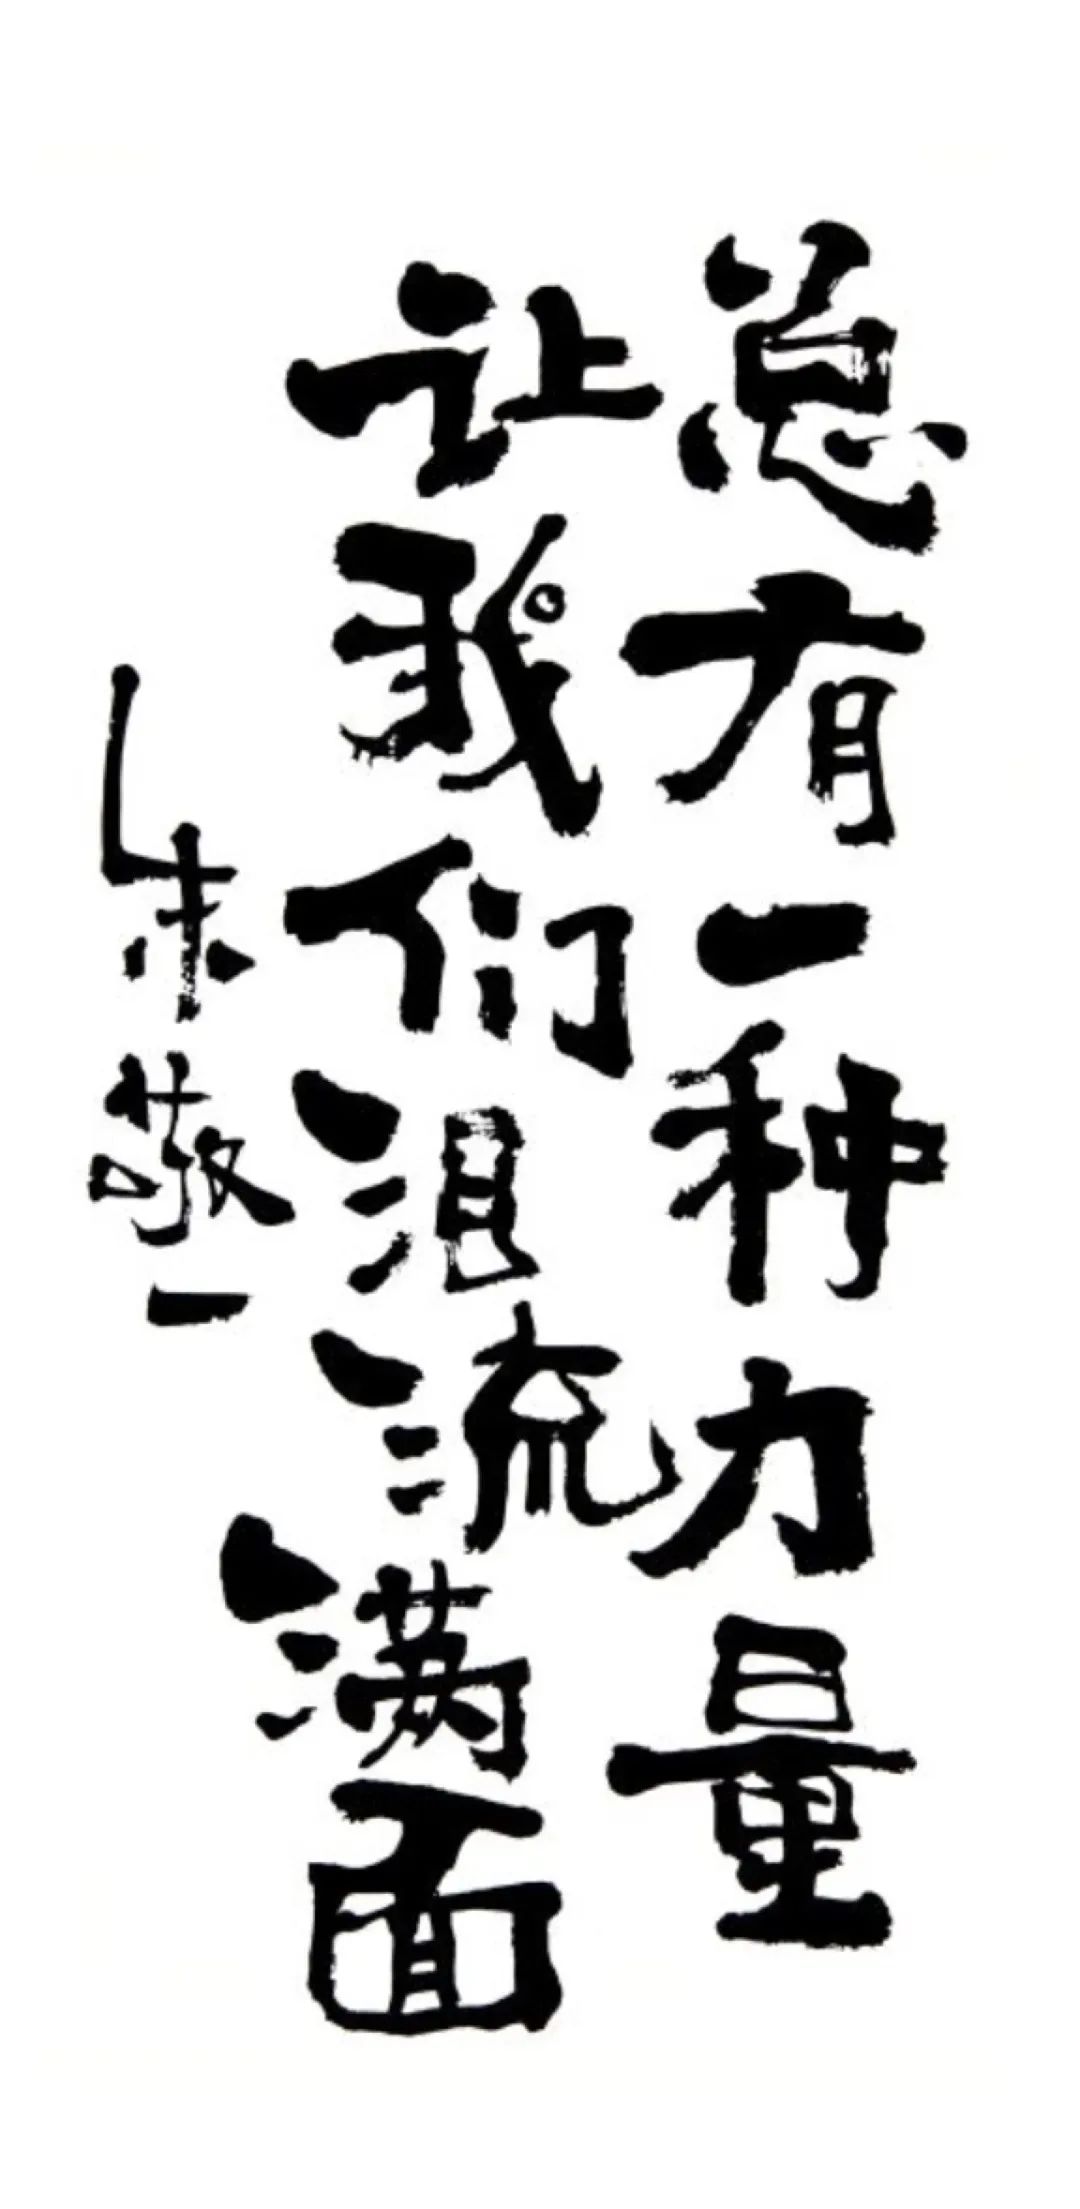 总有一种力量
让我们泪流满面
朱敬一